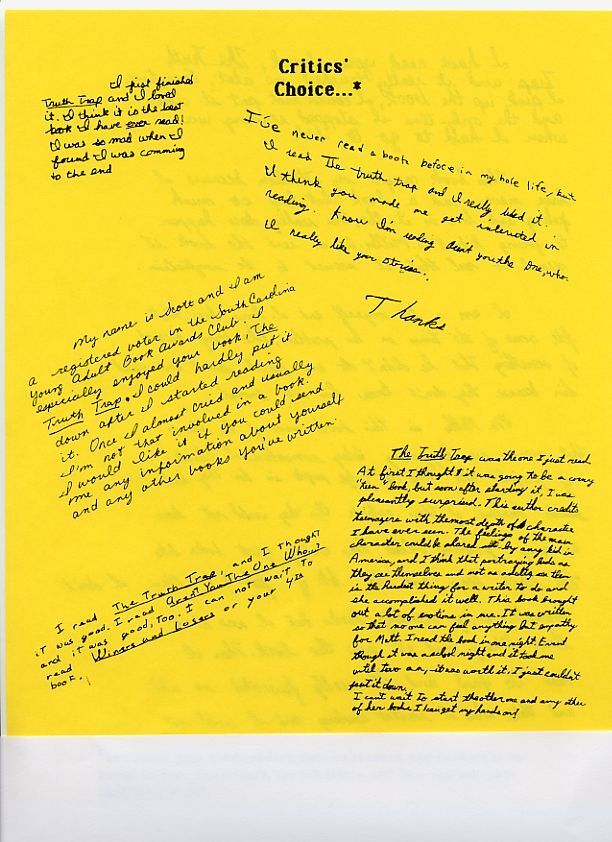 Critics'
Choice...*
I just finished
Truth Trap and I loved
it. I think it is the best
book I have ever read!
I was so mad when I
found I was comming
to the end
I've never read a book before in my hole life, but
I read The truth trap and I really liked it..
I think you made me get interested in
reading. Know I'm reading Aren't you the One, who..
I really like your stories..
Thanks
My name is Scott and I am
a registered voter in the South Carolina
Young Adult Book Awards Club. I
especially enjoyed your book, The
Truth Trap. I could hardly put it
down after I started reading
it. Once I almost cried and usually
I'm not that involved in a book.
I would like it if you could send
me any information about yourself
and any other books you've written.
I read The Truth Trap, and I thought
it was good. I read Aren't You The One Who...?
and it was good, too. I can not wait to
read Winers and Losers or your 4th
book.
The Truth Trap was the one I just read
At first I thought it was going to be a corny
"teen" book, but soon after starting it, I was
pleasantly surprised. This author credits
teenagers with the most depth of character
I have ever seen. The feelings of the main
character could be shared by any kid in
America, and I think that portraying kids as
they see themselves and not as adults see them
is the hardest thing for a writer to do and
she accomplished it well. This book brought
out a lot of emotions in me. It was written
so that no one can feel anything but empathy
for Matt. I read the book in one night Even
though it was a school night and it took me
until two a.m., it was worth it, I just couldn't
put it down.
I can't wait to start the other one and any other
of her books I can get my hands on!